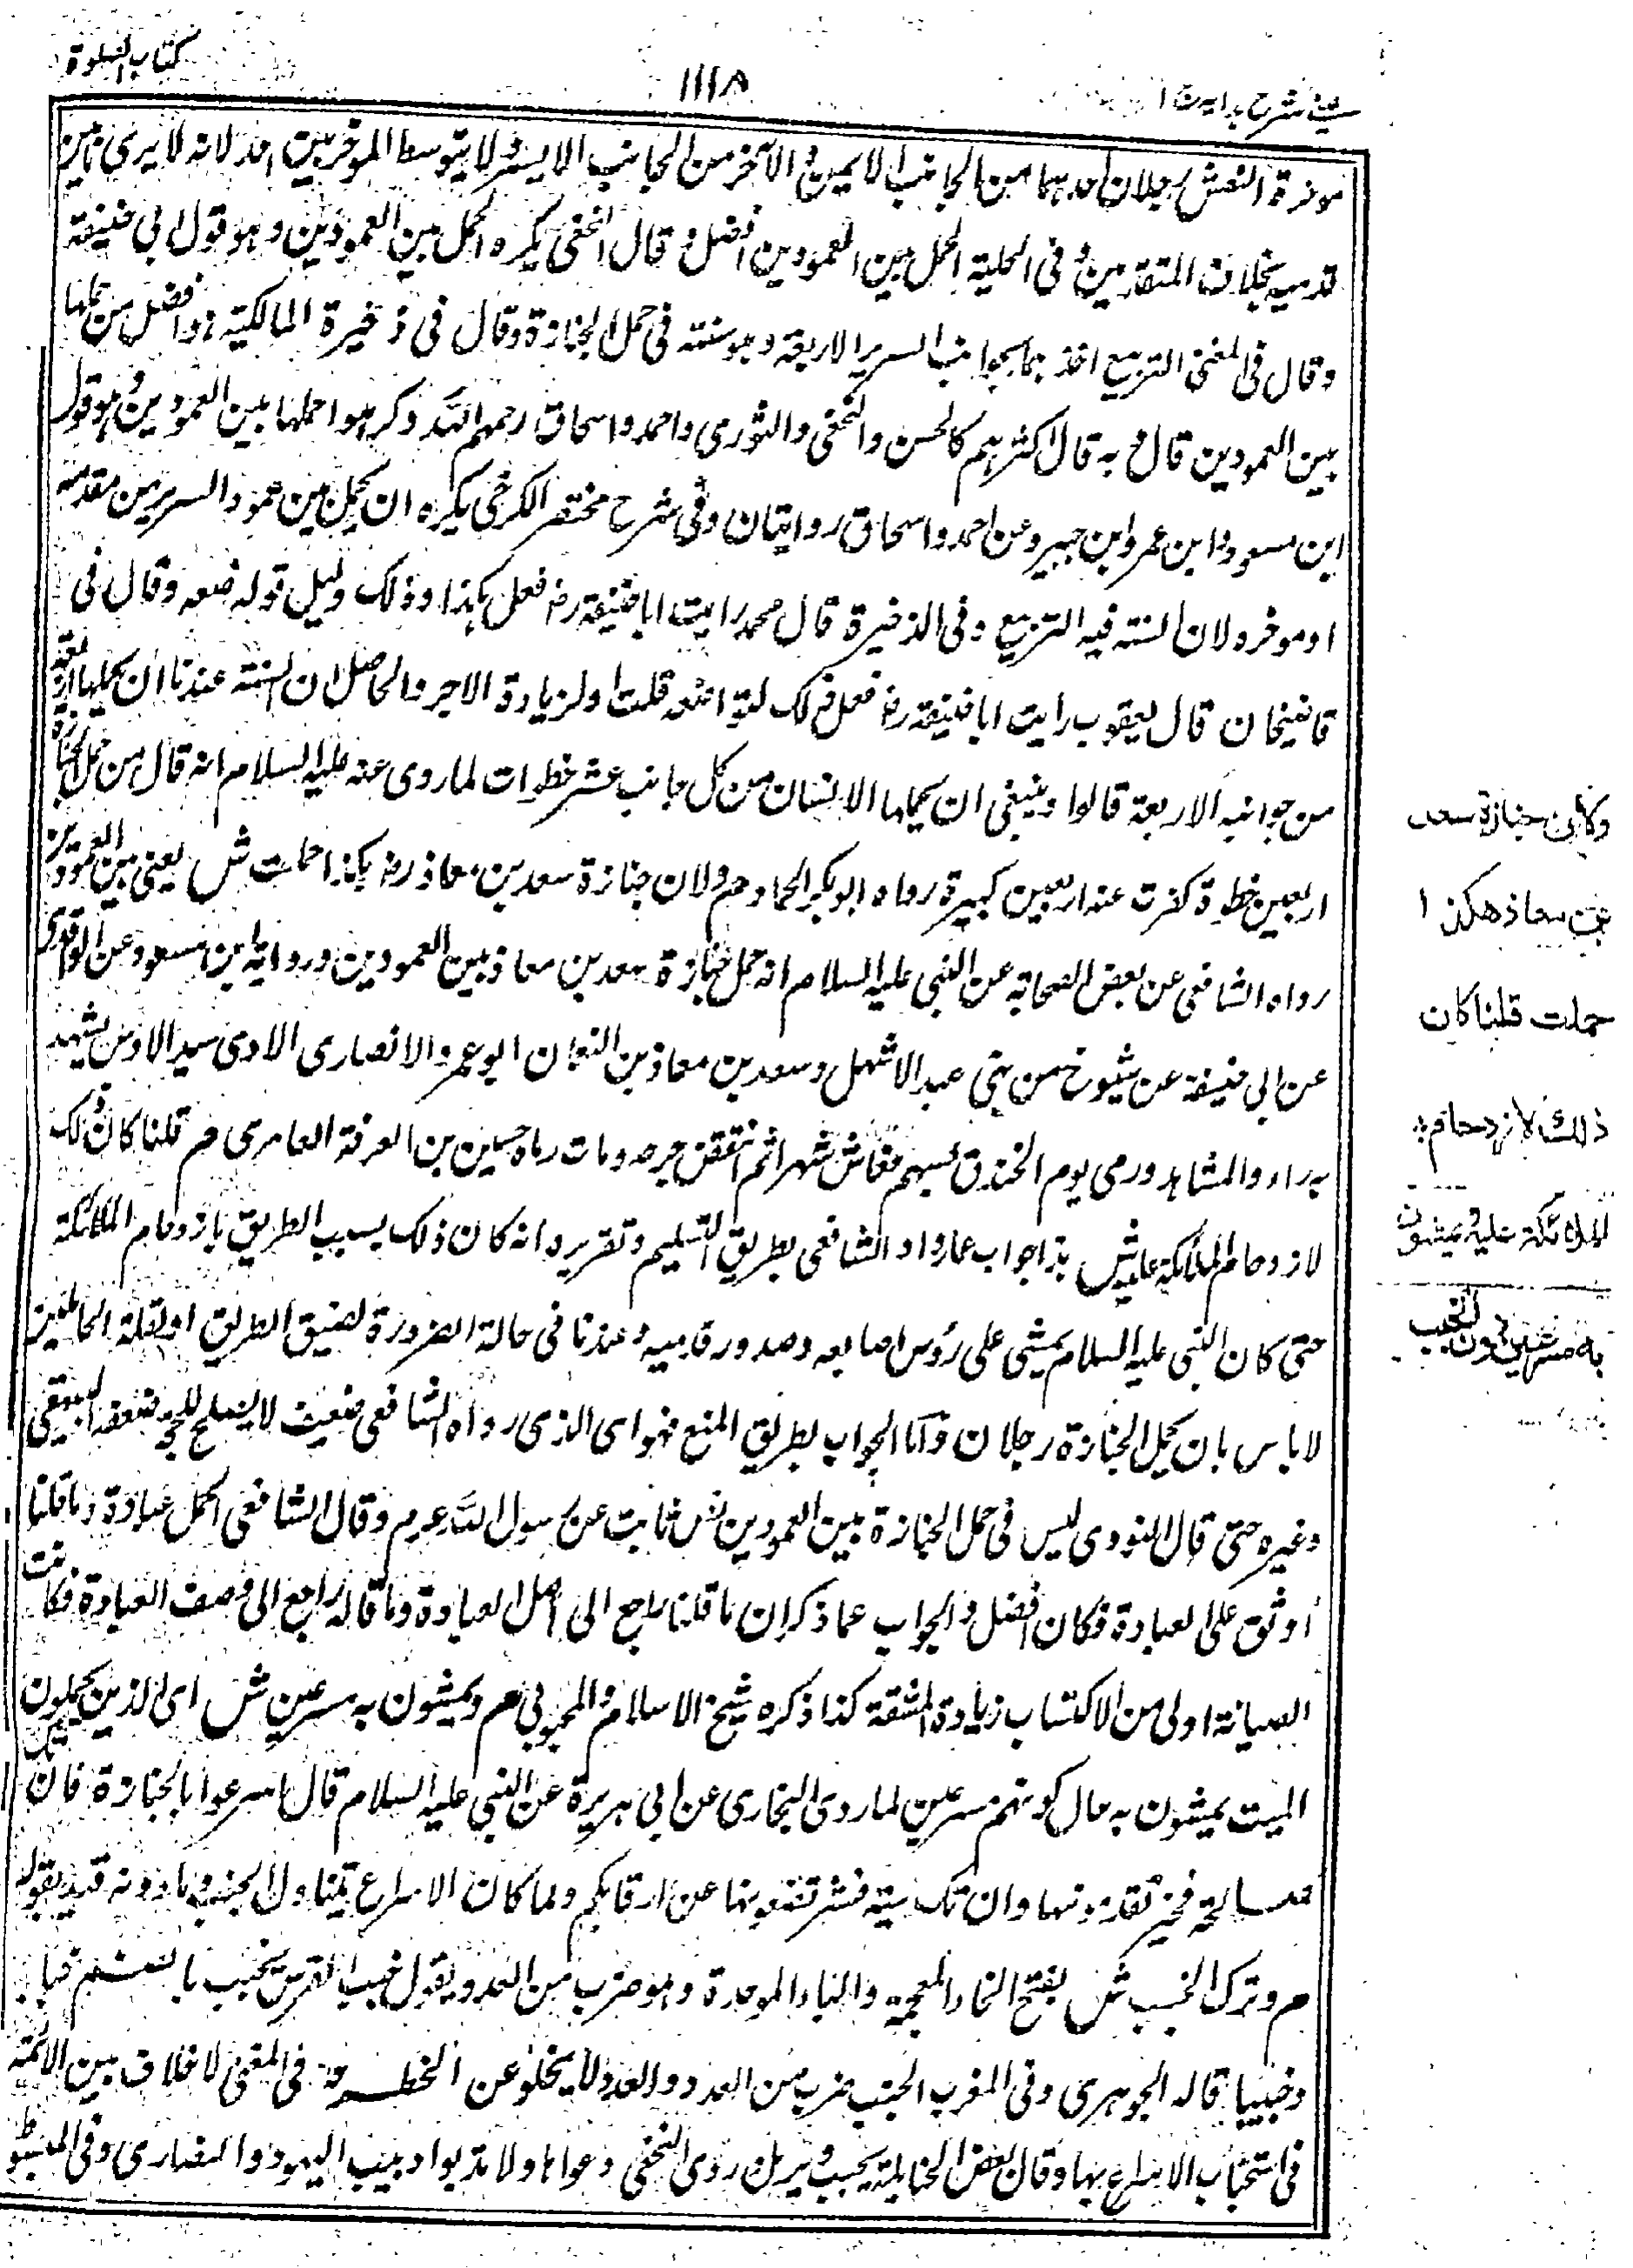 عینی شرح ہدایہ
۱۱۱۸
کتاب الصلوة
موخرة النعش رجلان احدہما من الجانب الایمن والآخر من الجانب الایسر ولا یتوسط الموخرتین احد لانہ لا یری ما بین
قدمیہ بخلاف المتقدمین وفی الحلیة الحمل بین العمودین افضل وقال النخعی یکرہ الحمل بین العمودین وہو قول ابی حنیفة
وقال فی المغنی التربیع اخذ بجوانب السریر الاربعة وہو سنة فی حمل الجنازة وقال فی ذخیرة المالکیة ہو افضل من حملہا
بین العمودین قال وبہ قال اکثرہم کالحسن والنخعی والثوری واحمد واسحاق رحمہم اللہ وکرہوا حملہا بین العمودین وہو قول
ابن مسعود وابن عمر وابن جبیر وعن احمد واسحاق روایتان وفی شرح مختصر الکرخی یکرہ ان یحمل بین عمود السریر من مقدمہ
او موخرہ لان السنة فیہ التربیع وفی الذخیرة قال محمد رایت ابا حنیفة رض فعل ہکذا وذلک دلیل تواضعہ وقال فی
قاضیخان قال یعقوب رایت ابا حنیفة رض فعل ذلک لتواضعہ قلت او لزیادة الاجر والحاصل ان السنة عندنا ان یحملہا اربعة
من جوانبہ الاربعة قالوا وینبغی ان یحملہا الانسان من کل جانب عشر خطوات لما روی عنہ علیہ السلام انہ قال من حمل الجنازة
اربعین خطوة کفرت عنہ اربعین کبیرة رواہ ابو بکر النجاد م ولان جنازة سعد بن معاذ رض ہکذا حملت ش یعنی بین العمودین
رواہ الشافعی عن بعض الصحابة عن النبی علیہ السلام انہ حمل جنازة سعد بن معاذ بین العمودین ورواہ ابن مسعود عن الواقدی
عن ابی حنیفة عن شیوخ من بنی عبد الاشہل وسعد بن معاذ بن النعمان ابو عمرو الانصاری الاوسی سید الاوس شہد
بدرا والمشاہد ورمی یوم الخندق بسہم فعاش شہرا ثم انتقض جرحہ ومات رماہ حسین بن العرفة العامری م قلنا کان ذلک
لازدحام الملائکة علیہ ش ہذا جواب عما رواہ الشافعی بطریق التسلیم وتقریرہ انہ کان ذلک بسبب الطریق بازدحام الملائکة
حتی کان النبی علیہ السلام یمشی علی رؤس اصابعہ وصدور قدمیہ وعندنا فی حالة الضرورة لضیق الطریق او لقلة الحاملین
لا باس بان یحمل الجنازة رجلان واما الجواب بطریق المنع فہو ای الذی رواہ الشافعی ضعیف لا یصلح للحجة ضعفہ البیہقی
وغیرہ حتی قال النووی لیس فی حمل الجنازة بین العمودین نص ثابت عن رسول اللہ عم م وقال الشافعی الحمل عبادة وما قلنا
اوثق علی العبادة فکان افضل والجواب عما ذکر ان ما قلنا راجع الی اصل العبادة وما قالہ راجع الی وصف العبادة فکانت
الصیانة اولی من الاکتساب زیادة المشقة کذا ذکرہ شیخ الاسلام والمحبوبی م ویمشون بہ مسرعین ش ای الذین یحملون
المیت یمشون بہ حال کونہم مسرعین لما روی البخاری عن ابی ہریرة عن النبی علیہ السلام قال اسرعوا بالجنازة فان تک
صالحة فخیر تقدمونہا وان تک سیئة فشر تضعونہا عن رقابکم ولما کان الاسراع یتناول الخبب وما دونہ قید بقولہ
م وترک الخبب ش بفتح الخاء المعجمة والباء الموحدة وہو ضرب من العدو یقول خبب الفرس یخبب بالضم خبا
وخبیبا قالہ الجوہری وفی المغرب الخبب ضرب من العدو والعدو لا یخلو عن الخطر م فی المغنی لا خلاف بین الائمة
فی استحباب الاسراع بہا وقال بعض الحنابلة یخبب ویرمل روی النخعی دعوا ہا ولا تدبوا دبیب الیہود والنصاری وفی المبسوط
وکأن جنازة سعد
بن معاذ هکذا
حملت قلنا کان
ذلك لازدحام
الملائکة علیہ ویمشون
به مسرعین دون الخبب